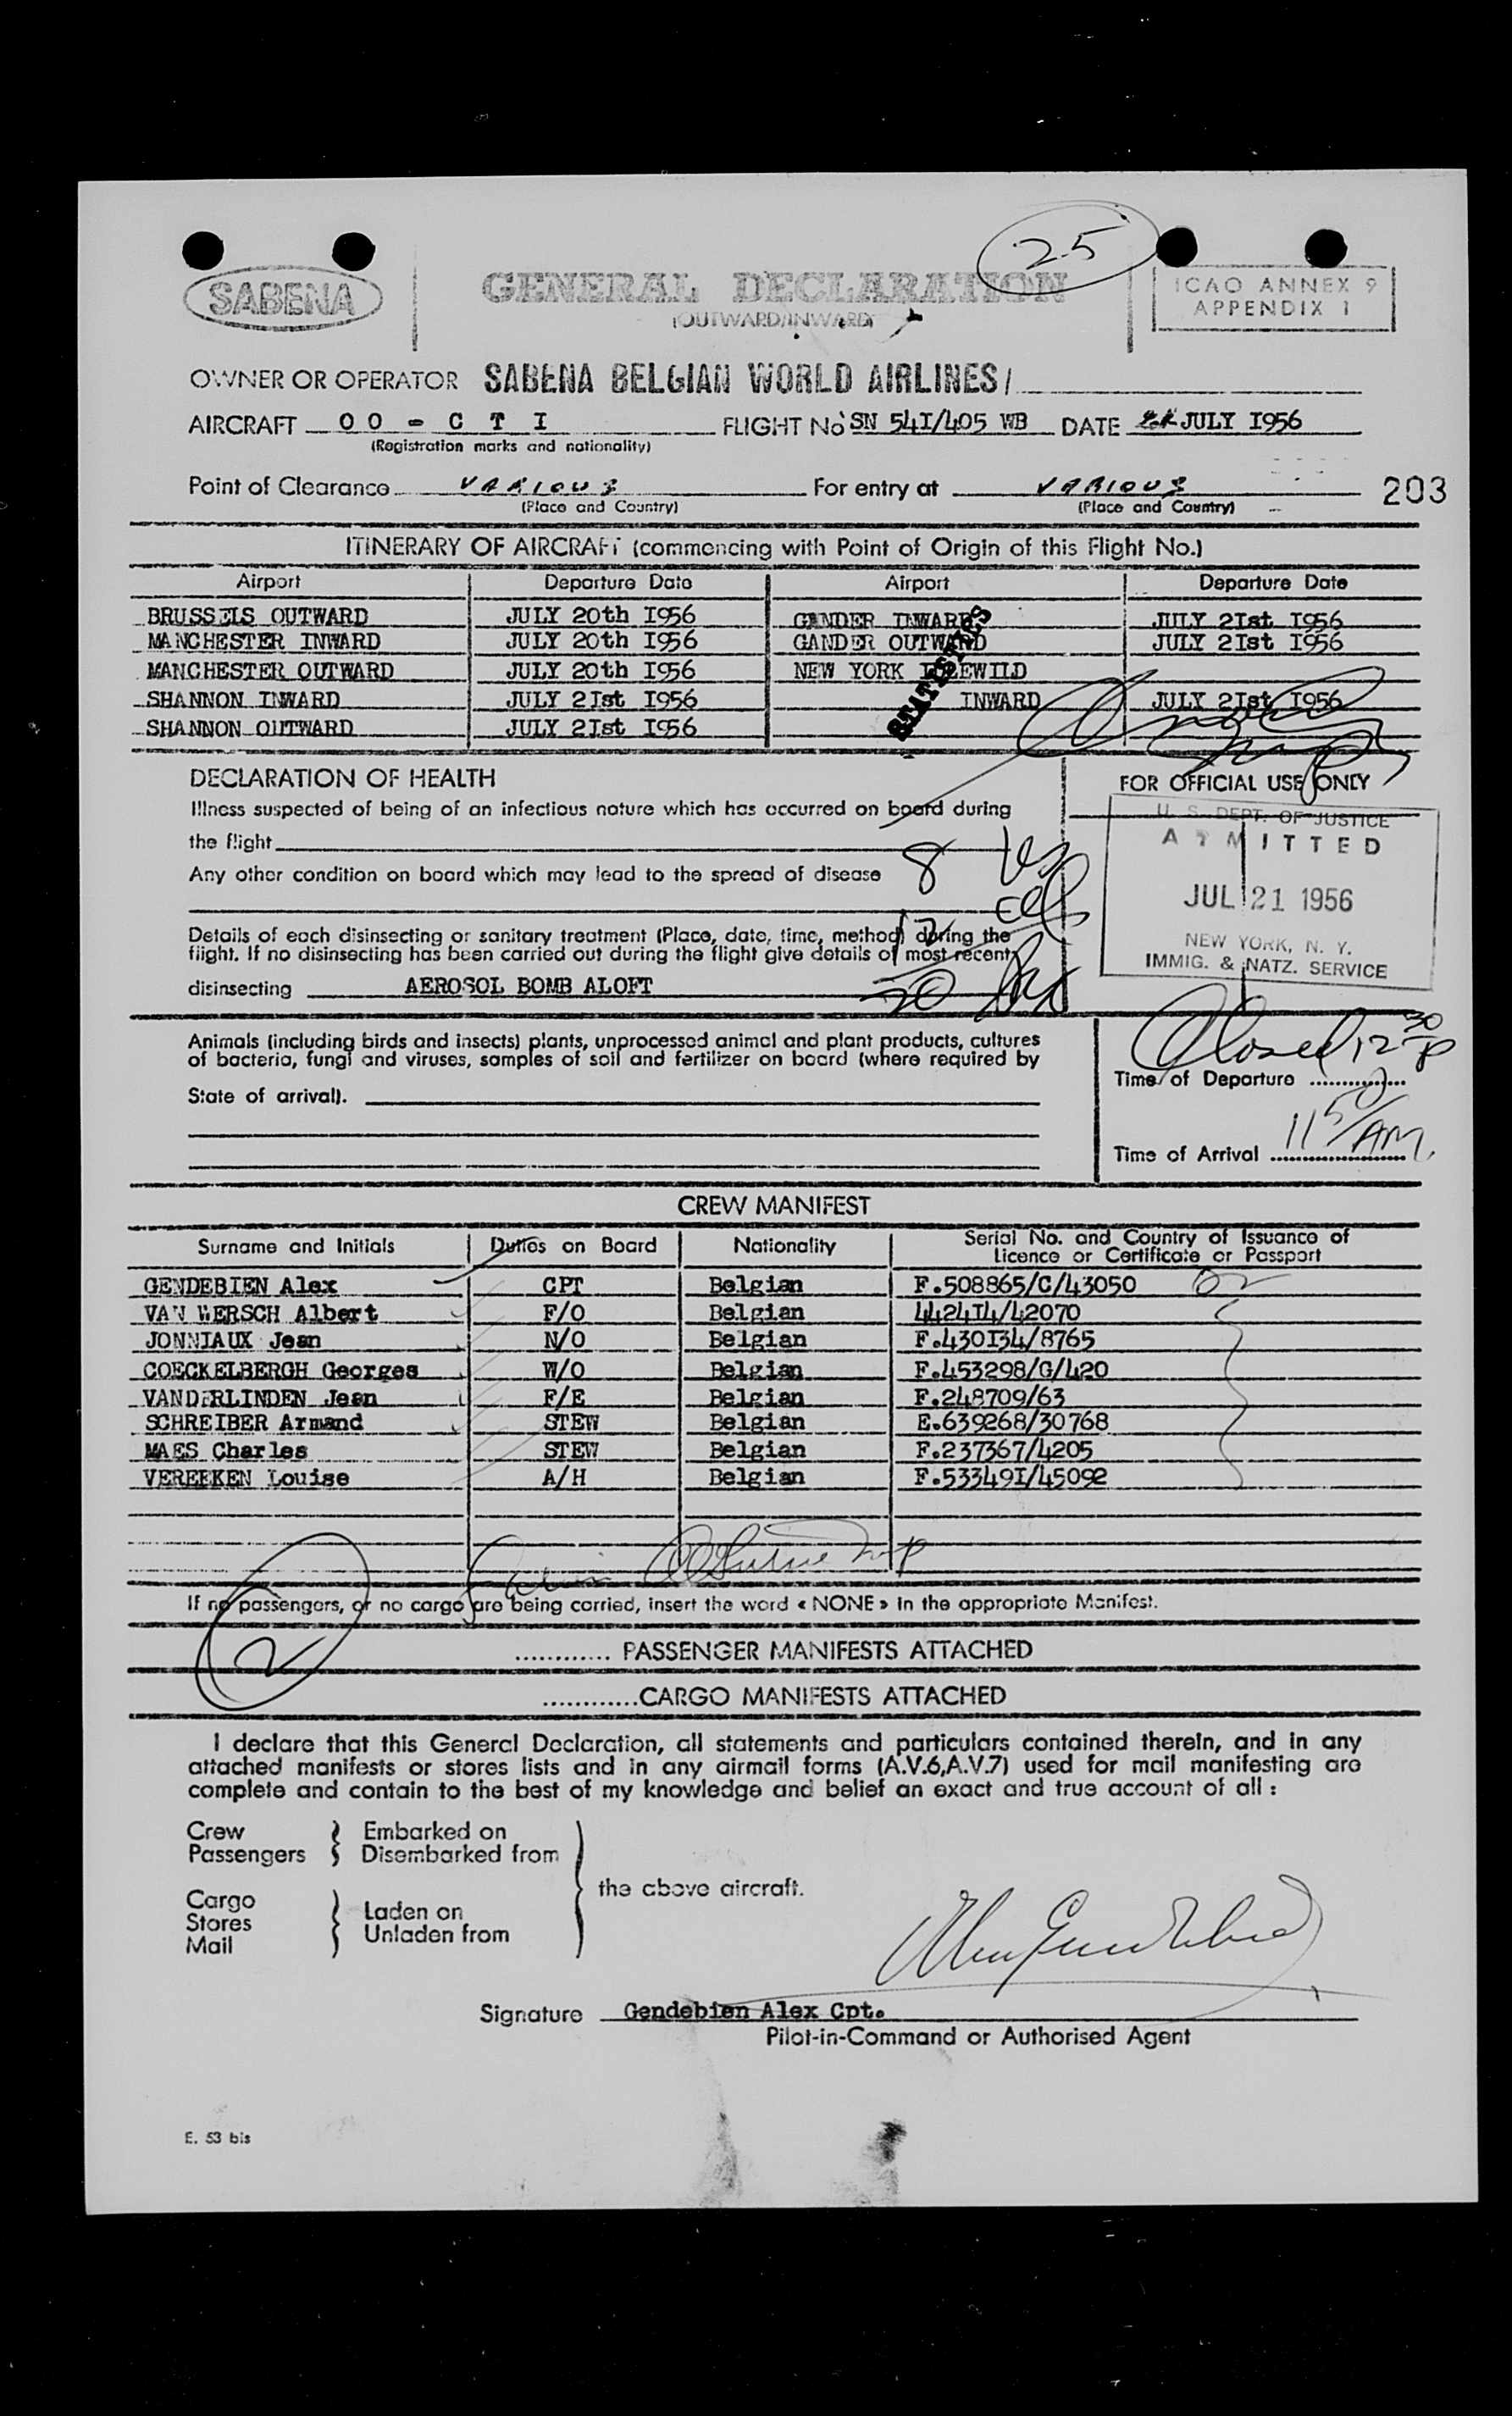 25
SABENA
GENERAL DECLARATION
(OUTWARD/INWARD)
ICAO ANNEX 9
APPENDIX 1
OWNER OR OPERATOR SABENA BELGIAN WORLD AIRLINES/
AIRCRAFT OO - C T I FLIGHT No SN 54I/405 WB DATE JULY I956
(Registration marks and nationality)
Point of Clearance VARIOUS For entry at VARIOUS 203
(Place and Country) (Place and Country)
ITINERARY OF AIRCRAFT (commencing with Point of Origin of this Flight No.)
Airport Departure Date Airport Departure Date
BRUSSELS OUTWARD JULY 20th I956 GANDER INWARD JULY 2Ist I956
MANCHESTER INWARD JULY 20th I956 GANDER OUTWARD JULY 2Ist I956
MANCHESTER OUTWARD JULY 20th I956 NEW YORK IDLEWILD
SHANNON INWARD JULY 2Ist I956 INWARD JULY 2Ist I956
SHANNON OUTWARD JULY 2Ist I956
STATISTICS
DECLARATION OF HEALTH
FOR OFFICIAL USE ONLY
Illness suspected of being of an infectious nature which has occurred on board during
the flight
Any other condition on board which may lead to the spread of disease 8
U. S. DEPT. OF JUSTICE
ADMITTED
JUL 21 1956
NEW YORK, N. Y.
IMMIG. & NATZ. SERVICE
Details of each disinsecting or sanitary treatment (Place, date, time, method) during the
flight. If no disinsecting has been carried out during the flight give details of most recent
disinsecting AEROSOL BOMB ALOFT
12
20
Animals (including birds and insects) plants, unprocessed animal and plant products, cultures
of bacteria, fungi and viruses, samples of soil and fertilizer on board (where required by
State of arrival).
Closed 12 30 P
Time of Departure
Time of Arrival 11 50 AM
CREW MANIFEST
Surname and Initials Duties on Board Nationality Serial No. and Country of Issuance of
Licence or Certificate or Passport
GENDEBIEN Alex CPT Belgian F.508865/C/43050
VAN WERSCH Albert F/O Belgian 4424I4/42070
JONNIAUX Jean N/O Belgian F.430I34/8765
COECKELBERGH Georges W/O Belgian F.453298/G/420
VANDERLINDEN Jean F/E Belgian F.248709/63
SCHREIBER Armand STEW Belgian E.639268/30768
MAES Charles STEW Belgian F.237367/4205
VEREEKEN Louise A/H Belgian F.53349I/45092
If no passengers, or no cargo are being carried, insert the word « NONE » in the appropriate Manifest.
2
............ PASSENGER MANIFESTS ATTACHED
............CARGO MANIFESTS ATTACHED
I declare that this General Declaration, all statements and particulars contained therein, and in any
attached manifests or stores lists and in any airmail forms (A.V.6,A.V.7) used for mail manifesting are
complete and contain to the best of my knowledge and belief an exact and true account of all :
Crew Embarked on
Passengers Disembarked from
the above aircraft.
Cargo
Stores Laden on
Mail Unladen from
Signature Gendebien Alex Cpt.
Pilot-in-Command or Authorised Agent
E. 53 bis